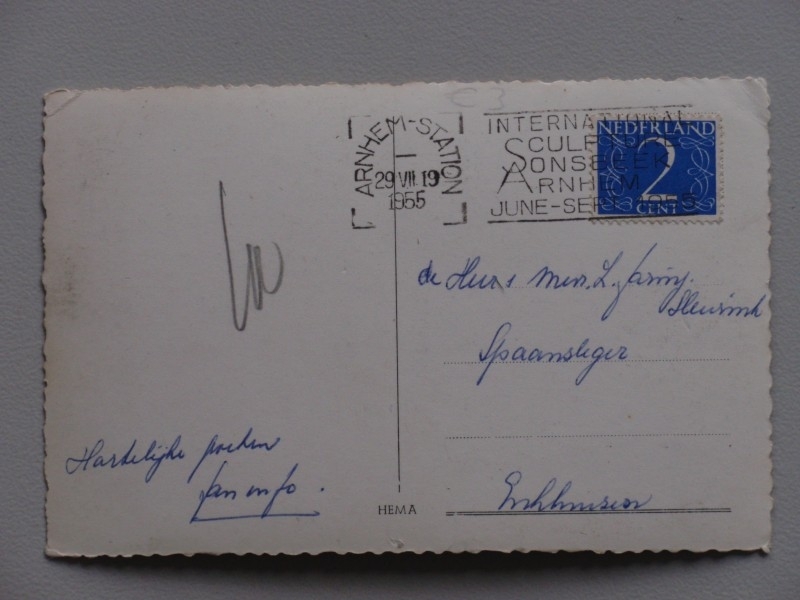 ARNHEM-STATION
29 VII. 19
1955
INTERNATIONAL
SCULPTURE
SONSBEEK
ARNHEM
JUNE-SEPT. 1955
NEDERLAND
2
CENT
de Heer & Mevr. L. Jaring.
Spaansleger
Enkhuizen
Hartelijke groeten
Jan en Jo.
HEMA